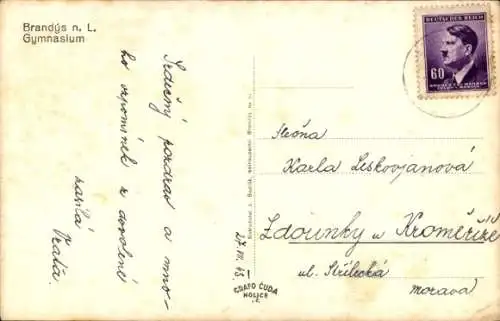 Brandýs n. L.
Gymnasium
Srdečný pozdrav a mno-
ho vzpomínek z dovolené
zasílá
Vlasta.
27. VII. 43.
GRAFO ČUDA
HOLICE
DEUTSCHES REICH
60
BÖHMEN u. MÄHREN
ČECHY a MORAVA
Slečna
Karla Leskovjanová
Zdounky u Kroměříže
ul. Střílecká
Morava